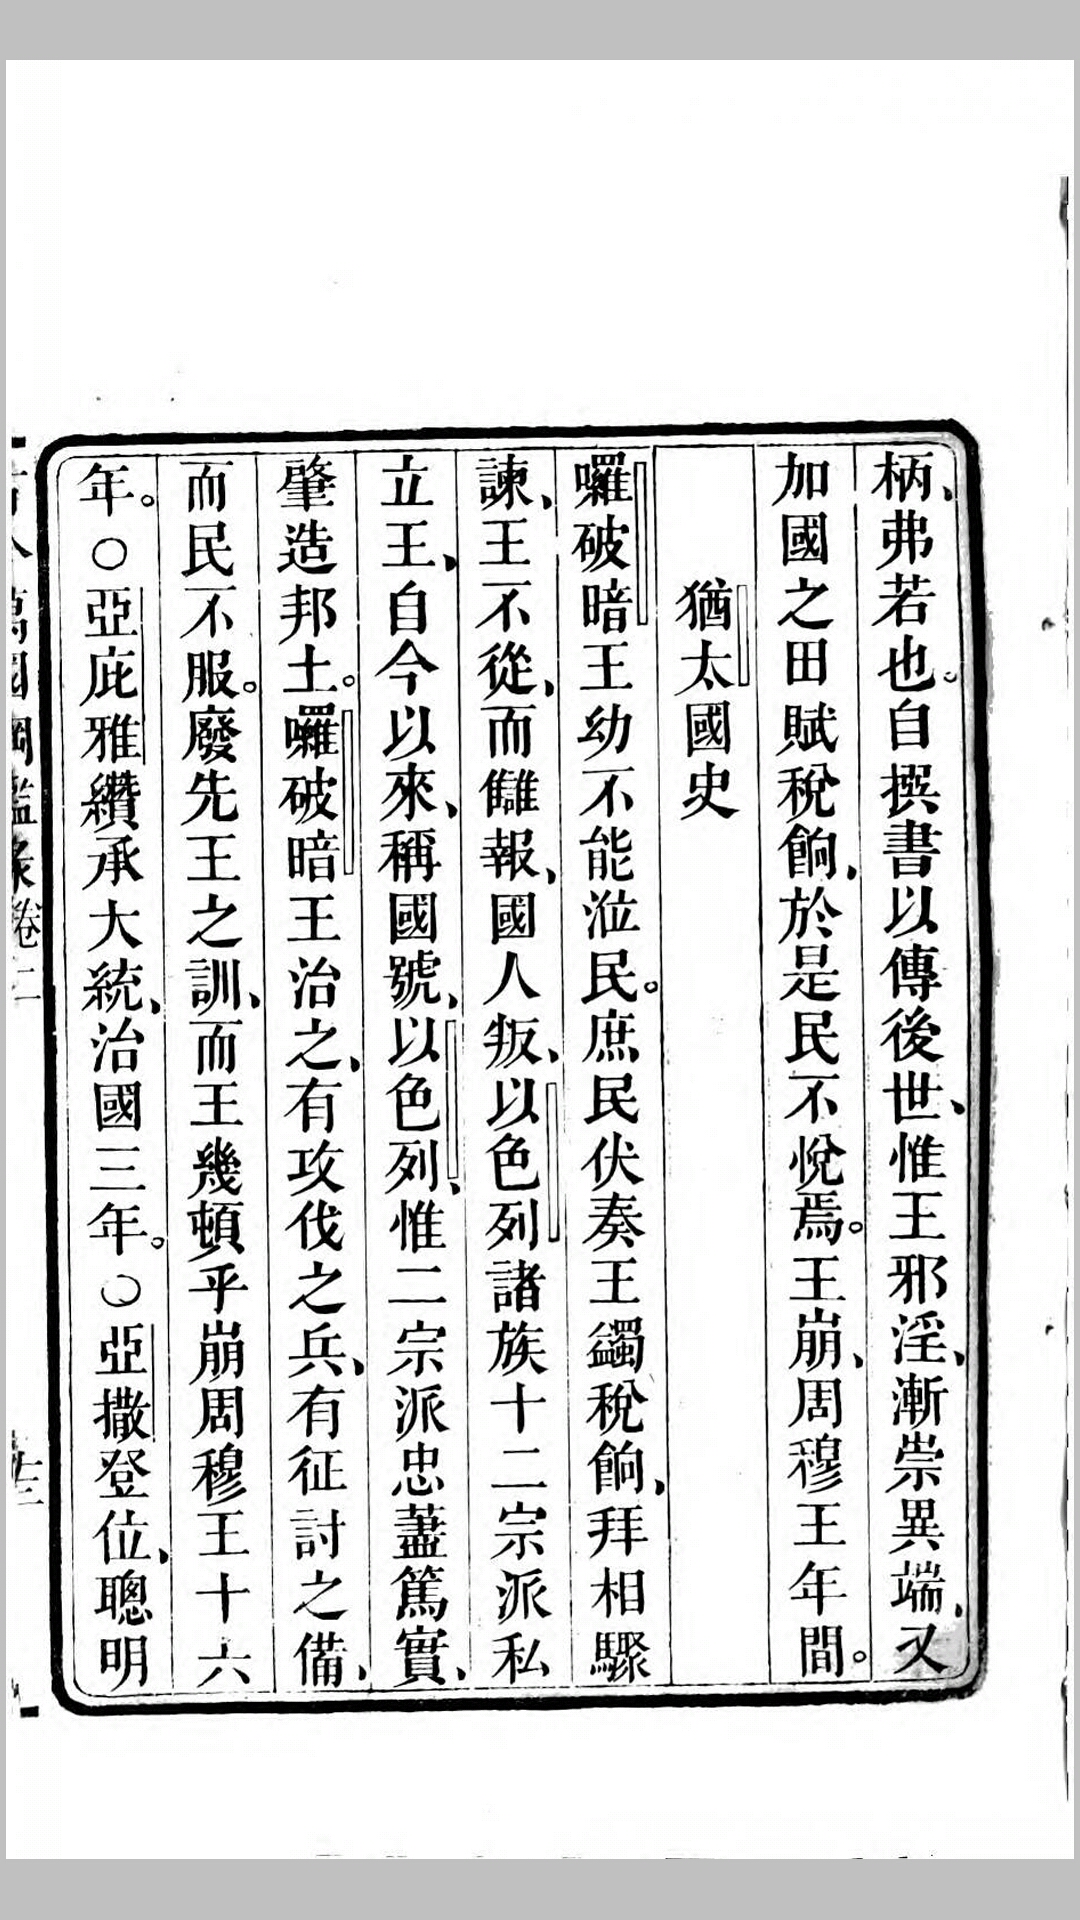 柄、弗若也。自撰書以傳後世、惟王邪淫、漸崇異端、又
加國之田賦稅餉、於是民不悅焉。王崩、周穆王年間。
猶太國史
囉破暗王幼不能涖民。庶民伏奏王蠲稅餉、拜相驟
諫、王不從、而讎報、國人叛、以色列諸族十二宗派私
立王、自今以來、稱國號、以色列、惟二宗派忠藎篤實、
肇造邦土。囉破暗王治之、有攻伐之兵、有征討之備、
而民不服。廢先王之訓、而王幾頓乎崩周穆王十六
年。○亞庇雅纘承大統、治國三年。○亞撒登位、聰明
古今萬國綱鑑彔卷二
十三